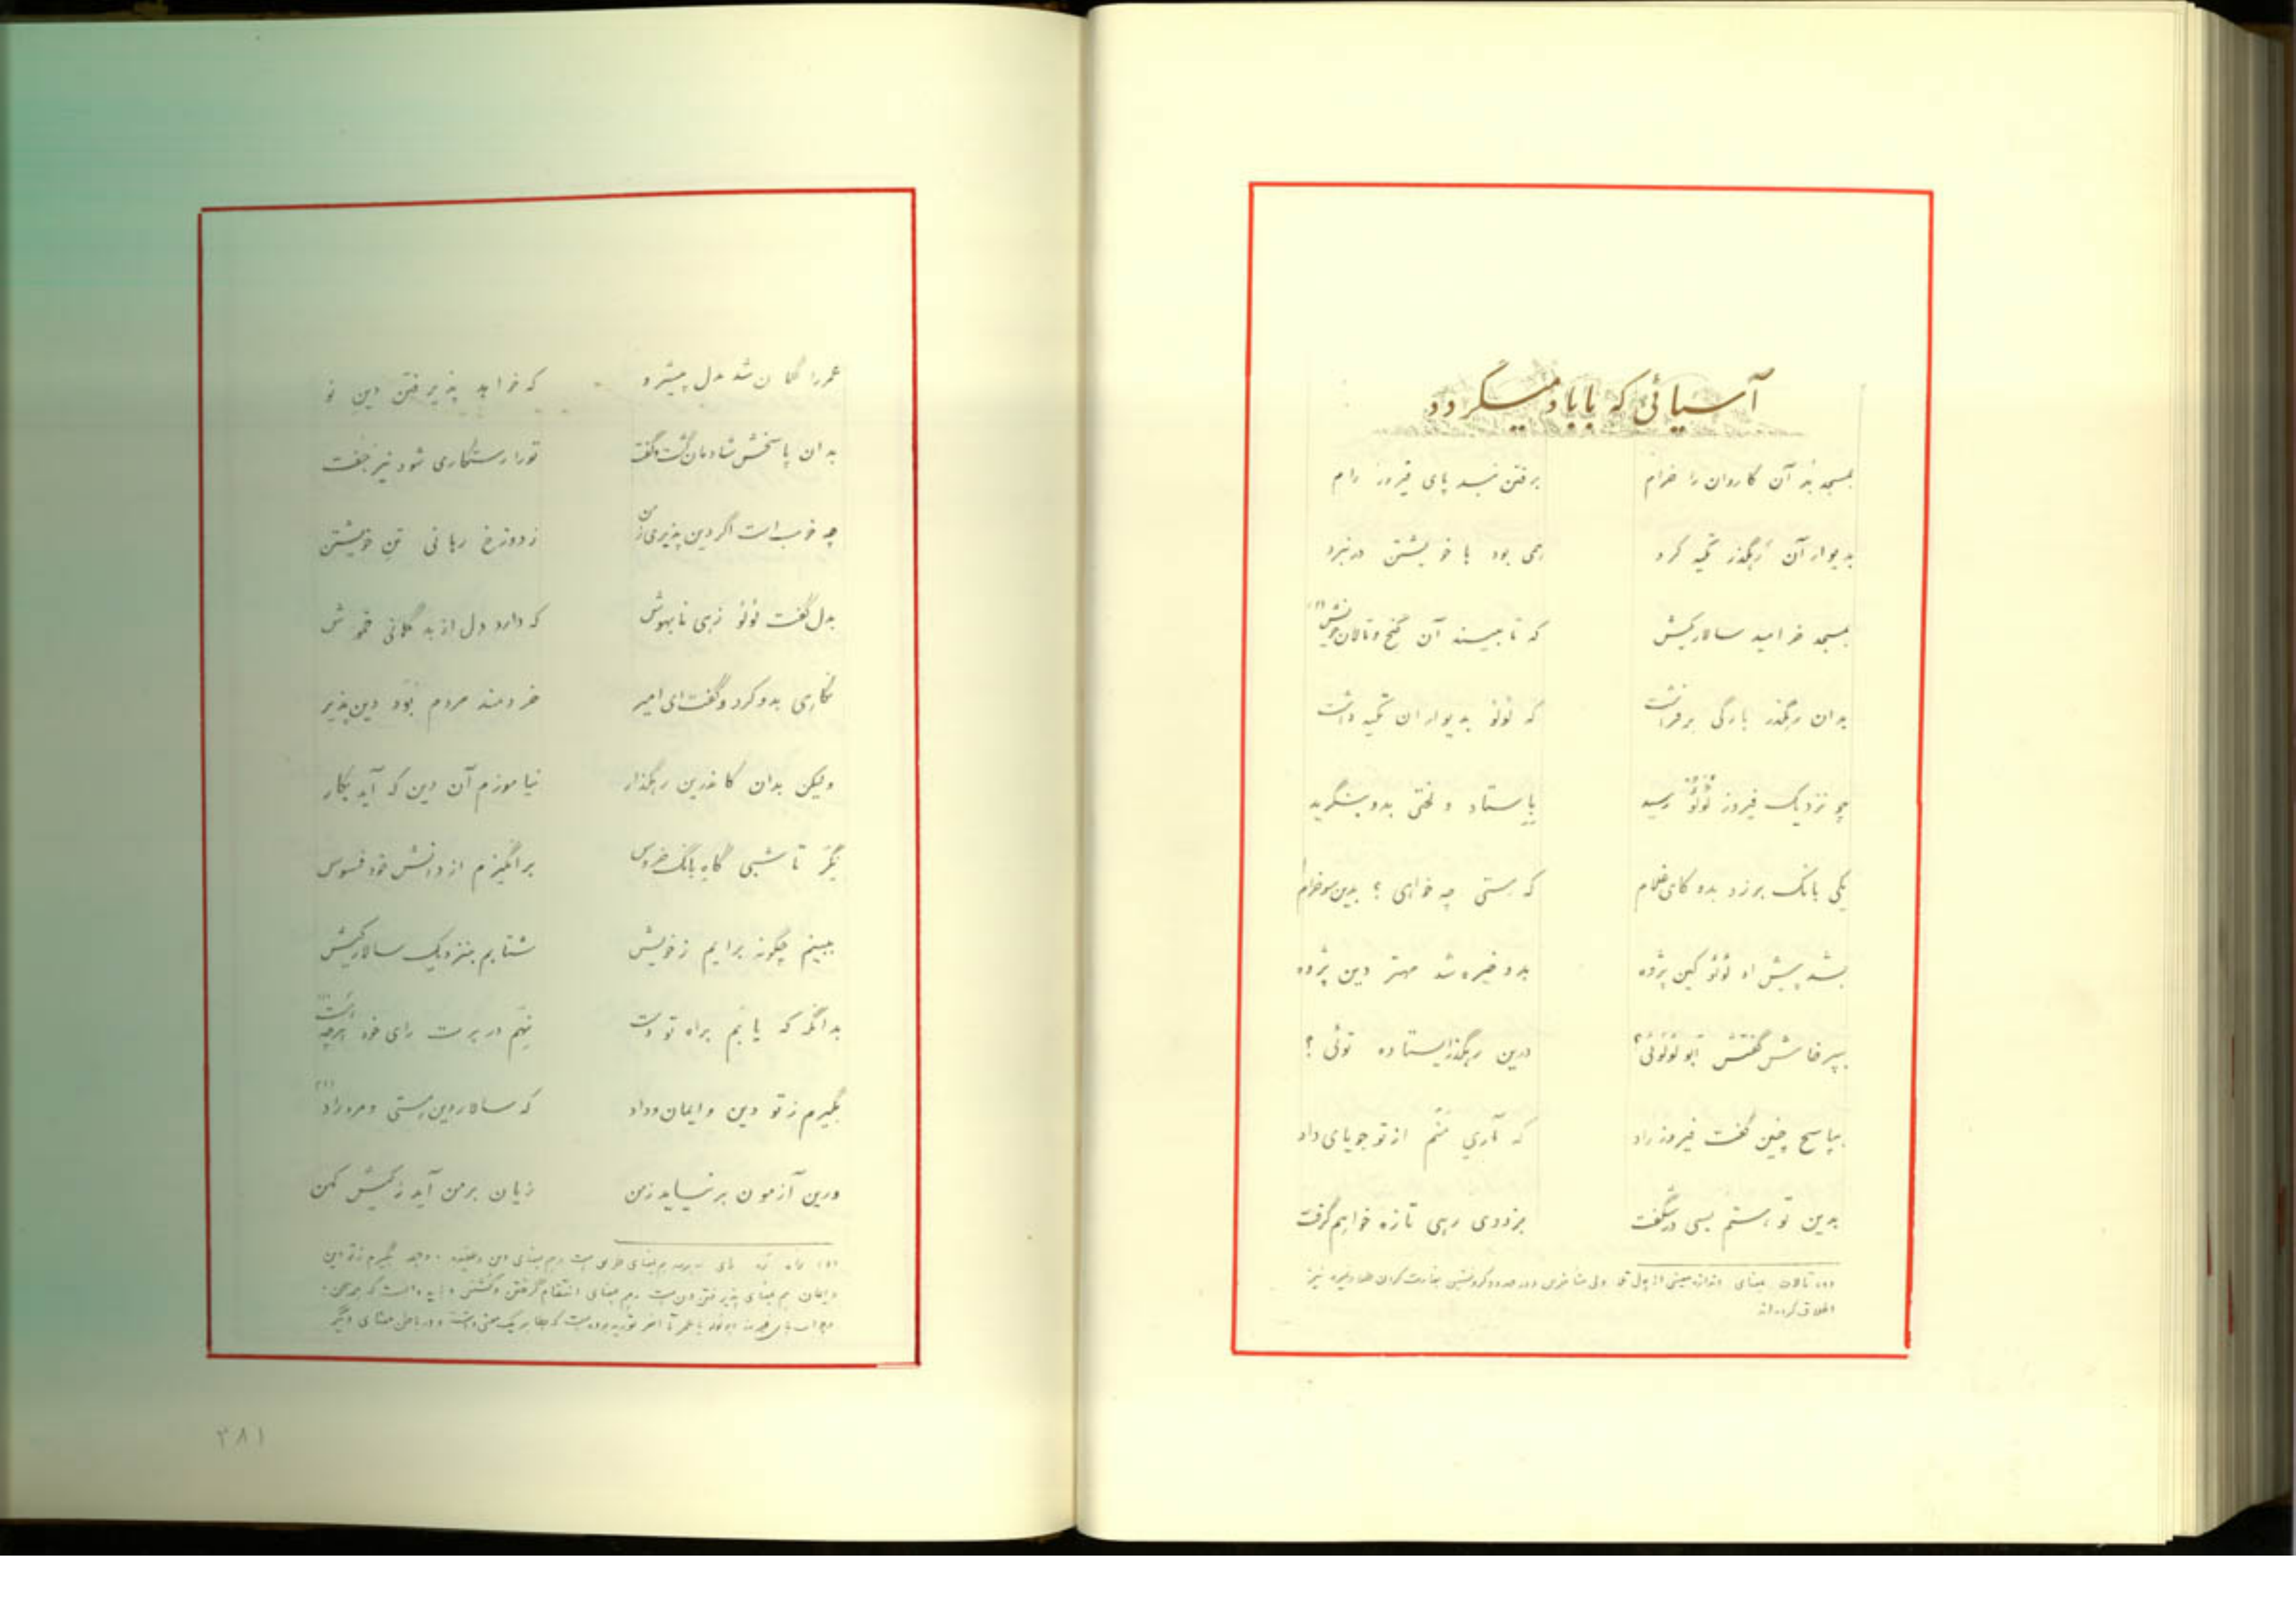 آسیائی که با باد میگردد
بمسجد بُد آن کاروان را خرام برفتن نبد پای فیروز رام
بدیوار آن رهگذر تکیه کرد همی بود با خویشتن در نبرد
بمسجد خرامید سالار کیش که تا بیند آن گنج و تالان خویش (۱)
بدان رهگذر بارگی برفراشت که لؤلؤ بدیوار آن تکیه داشت
چو نزدیک فیروز لؤلؤ رسید باستاد و لختی بدو بنگرید
یکی بانگ برزد بدو کای غلام که هستی چه خواهی ؟ بدین سو خرام
بشد پیش او لؤلؤ کین پژوه بدو خیره شد مهتر دین پژوه
بپرخاش گفتش ابولؤلؤئی؟ درین رهگذر ایستاده توئی ؟
بپاسخ چنین گفت فیروز راد که آری منم از تو جویای داد
بدین تو هستم بسی در شگفت بزودی رهی تازه خواهم گرفت
(۱) تالان بمعنای ولی متأخرین بغارت کردن نیز
اطلاق کرده اند
عمر را گمان شد بدل پیشرو که خواهد پذیرفتن دین نو
بدان پاسخش شادمان گشت و گفت تو را رستگاری شود نیز جفت
چه خوب است اگر دین پذیری ز من ز دوزخ رهانی تن خویشتن
بدل گفت لؤلؤ زهی نابهوش که دارد دل از بد گمانی خموش
نگاهی بدو کرد و گفت ای امیر خردمند مردم بود دین پذیر
ولیکن بدان کاندرین رهگذار نیاموزم آن دین که آید بکار
نگر تا شبی گاه بانگ خروس برانگیزم از دانش خود فسوس
ببینم چگونه برایم ز خویش شتابم بنزدیک سالار کیش
بدانگه که یابم براه تو دست نهم در برت رای خود هرچه هست (۱)
بگیرم ز تو دین و ایمان و داد که سالار دین هستی و مرد راد (۲)
ورین آزمون بر نیاید ز من زیان بر من آید ز کیش کهن
و ایمان هم بمعنای پذیرفتن دین است و هم بمعنای انتقام گرفتن و کشتن
۳۸۱